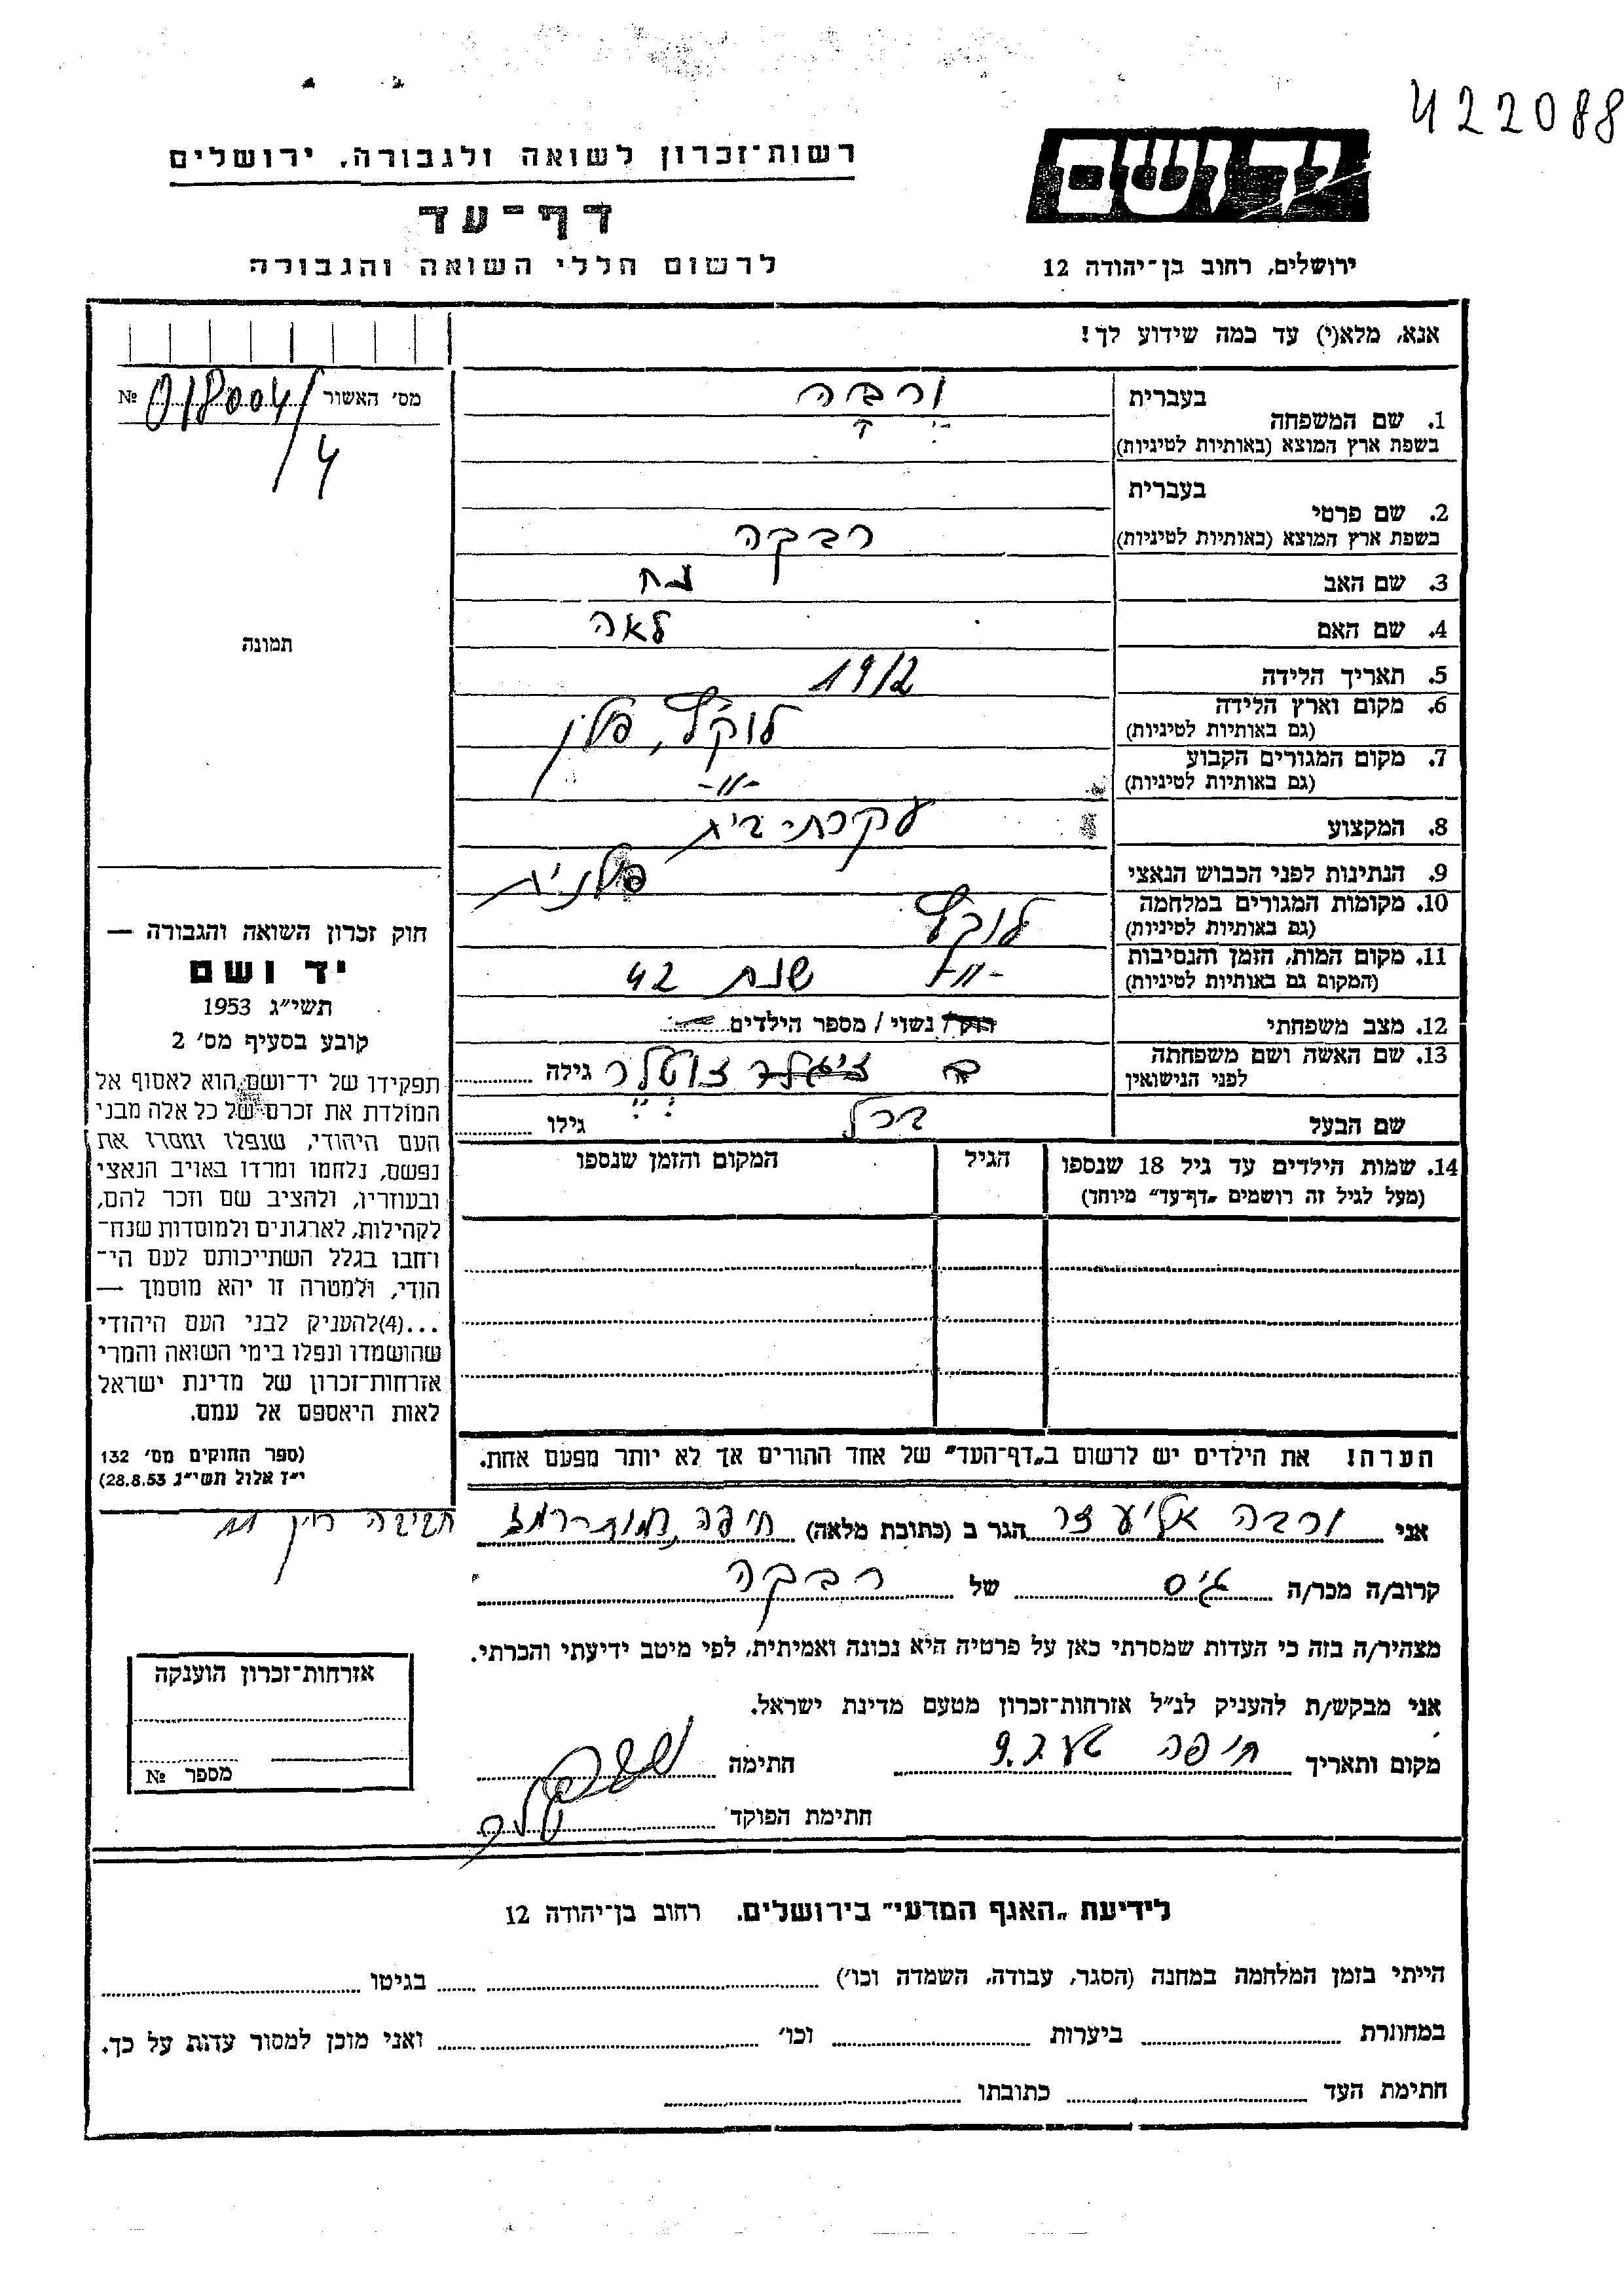 422088
יד ושם
רשות־זכרון לשואה ולגבורה, ירושלים
דף־עד
לרשום חללי השואה והגבורה
ירושלים, רחוב בן־יהודה 12
אנא, מלא(י) עד כמה שידוע לך!
מס׳ האשור 018004/ №
4
תמונה
1. שם המשפחה בעברית ורבה
בשפת ארץ המוצא (באותיות לטיניות)
2. שם פרטי בעברית
בשפת ארץ המוצא (באותיות לטיניות) רבקה
3. שם האב נח
4. שם האם לאה
5. תאריך הלידה 1912
6. מקום וארץ הלידה
(גם באותיות לטיניות) פולין
7. מקום המגורים הקבוע
(גם באותיות לטיניות) -״-
8. המקצוע עקרת בית
9. הנתינות לפני הכבוש הנאצי פולנית
10. מקומות המגורים במלחמה
(גם באותיות לטיניות)
11. מקום המות, הזמן והנסיבות
(המקום גם באותיות לטיניות) -״- שנת 42
12. מצב משפחתי רוק/ נשוי/ מספר הילדים
13. שם האשה ושם משפחתה
לפני הנישואין גילה
שם הבעל ברל גילו
14. שמות הילדים עד גיל 18 שנספו הגיל המקום והזמן שנספו
(מעל לגיל זה רושמים „דף־עד״ מיוחד)
הערה! את הילדים יש לרשום ב„דף־העד״ של אחד ההורים אך לא יותר מפעם אחת.
חוק זכרון השואה והגבורה —
יד ושם
תשי״ג 1953
קובע בסעיף מס׳ 2
תפקידו של יד־ושם הוא לאסוף אל
המולדת את זכרם של כל אלה מבני
העם היהודי, שנפלו ומסרו את
נפשם, נלחמו ומרדו באויב הנאצי
ובעוזריו, ולהציב שם וזכר להם,
לקהילות, לארגונים ולמוסדות שנח־
רחבו בגלל השתייכותם לעם הי־
הודי, ולמטרה זו יהא מוסמך —
...(4)להעניק לבני העם היהודי
שהושמדו ונפלו בימי השואה והמרי
אזרחות־זכרון של מדינת ישראל
לאות היאספם אל עמם.
(ספר החוקים מס׳ 132
י״ז אלול תשי״ג 28.8.53)
אני ורבה אליעזר הגר ב (כתובת מלאה) חיפה
קרוב/ה מכר/ה גיס של רבקה
מצהיר/ה בזה כי העדות שמסרתי כאן על פרטיה היא נכונה ואמיתית, לפי מיטב ידיעתי והכרתי.
אני מבקש/ת להעניק לנ״ל אזרחות־זכרון מטעם מדינת ישראל.
מקום ותאריך חיפה חתימה
חתימת הפוקד
אזרחות־זכרון הוענקה
מספר №
לידיעת „האגף המדעי״ בירושלים. רחוב בן־יהודה 12
הייתי בזמן המלחמה במחנה (הסגר, עבודה, השמדה וכו׳) בגיטו
במחתרת ביערות וכו׳ ואני מוכן למסור עדות על כך.
חתימת העד כתובתו